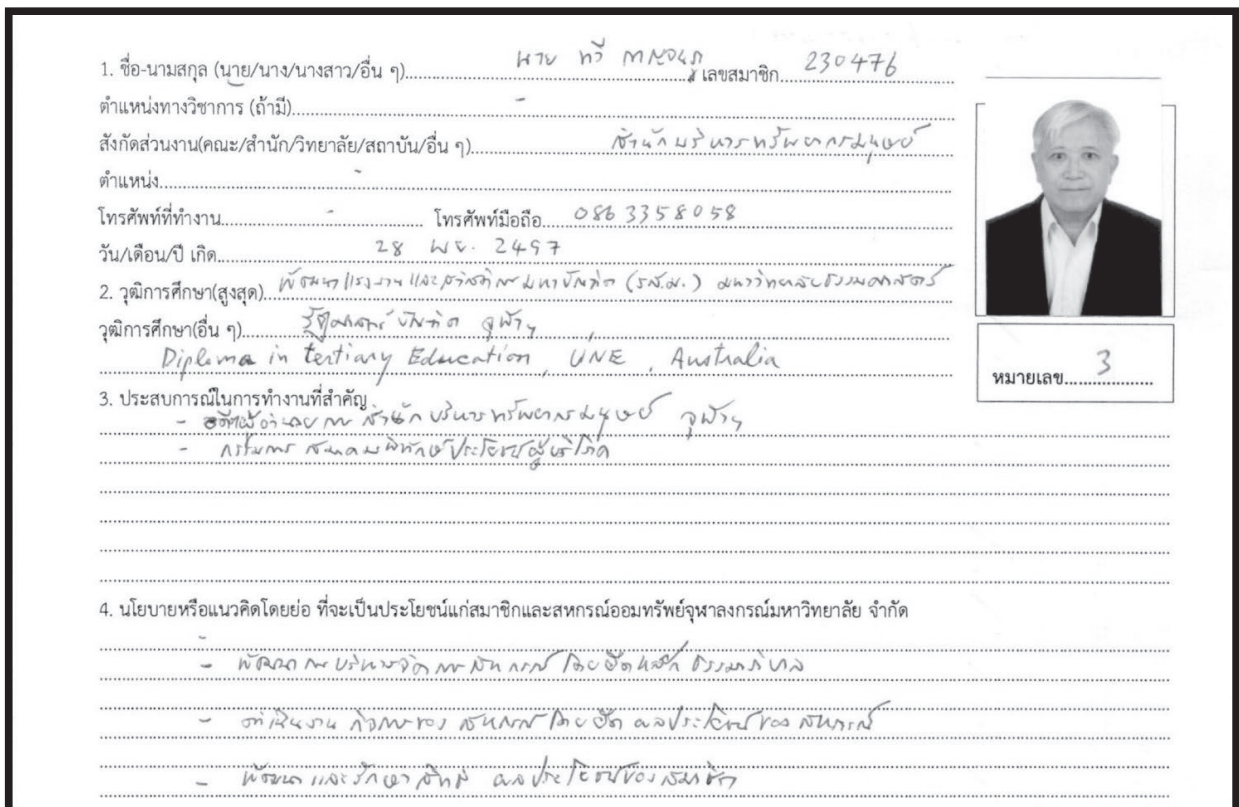 1. ชื่อ-นามสกุล (นาย/นาง/นางสาว/อื่น ๆ) นาย ทวี กาญจนภู เลขสมาชิก 230476
ตำแหน่งทางวิชาการ (ถ้ามี) -
สังกัดส่วนงาน(คณะ/สำนัก/วิทยาลัย/สถาบัน/อื่น ๆ) สำนักบริหารทรัพยากรมนุษย์
ตำแหน่ง -
โทรศัพท์ที่ทำงาน - โทรศัพท์มือถือ 0863358058
วัน/เดือน/ปี เกิด 28 พย. 2497
2. วุฒิการศึกษา(สูงสุด) พัฒนาแรงงานและสวัสดิการมหาบัณฑิต (รส.ม.) มหาวิทยาลัยธรรมศาสตร์
วุฒิการศึกษา(อื่น ๆ) รัฐศาสตร์บัณฑิต จุฬาฯ
Diploma in tertiary Education, UNE, Australia
หมายเลข 3
3. ประสบการณ์ในการทำงานที่สำคัญ
- อดีตผู้อำนวยการ สำนักบริหารทรัพยากรมนุษย์ จุฬาฯ
- กรรมการ สมาคมพิทักษ์ประโยชน์ผู้บริโภค
4. นโยบายหรือแนวคิดโดยย่อ ที่จะเป็นประโยชน์แก่สมาชิกและสหกรณ์ออมทรัพย์จุฬาลงกรณ์มหาวิทยาลัย จำกัด
- พัฒนาการบริหารจัดการสหกรณ์ โดยยึดหลักธรรมาภิบาล
- ดำเนินงาน กิจการของ สหกรณ์ โดยยึด ผลประโยชน์ของ สหกรณ์
- พัฒนาและรักษาสิทธิ ผลประโยชน์ของสมาชิก